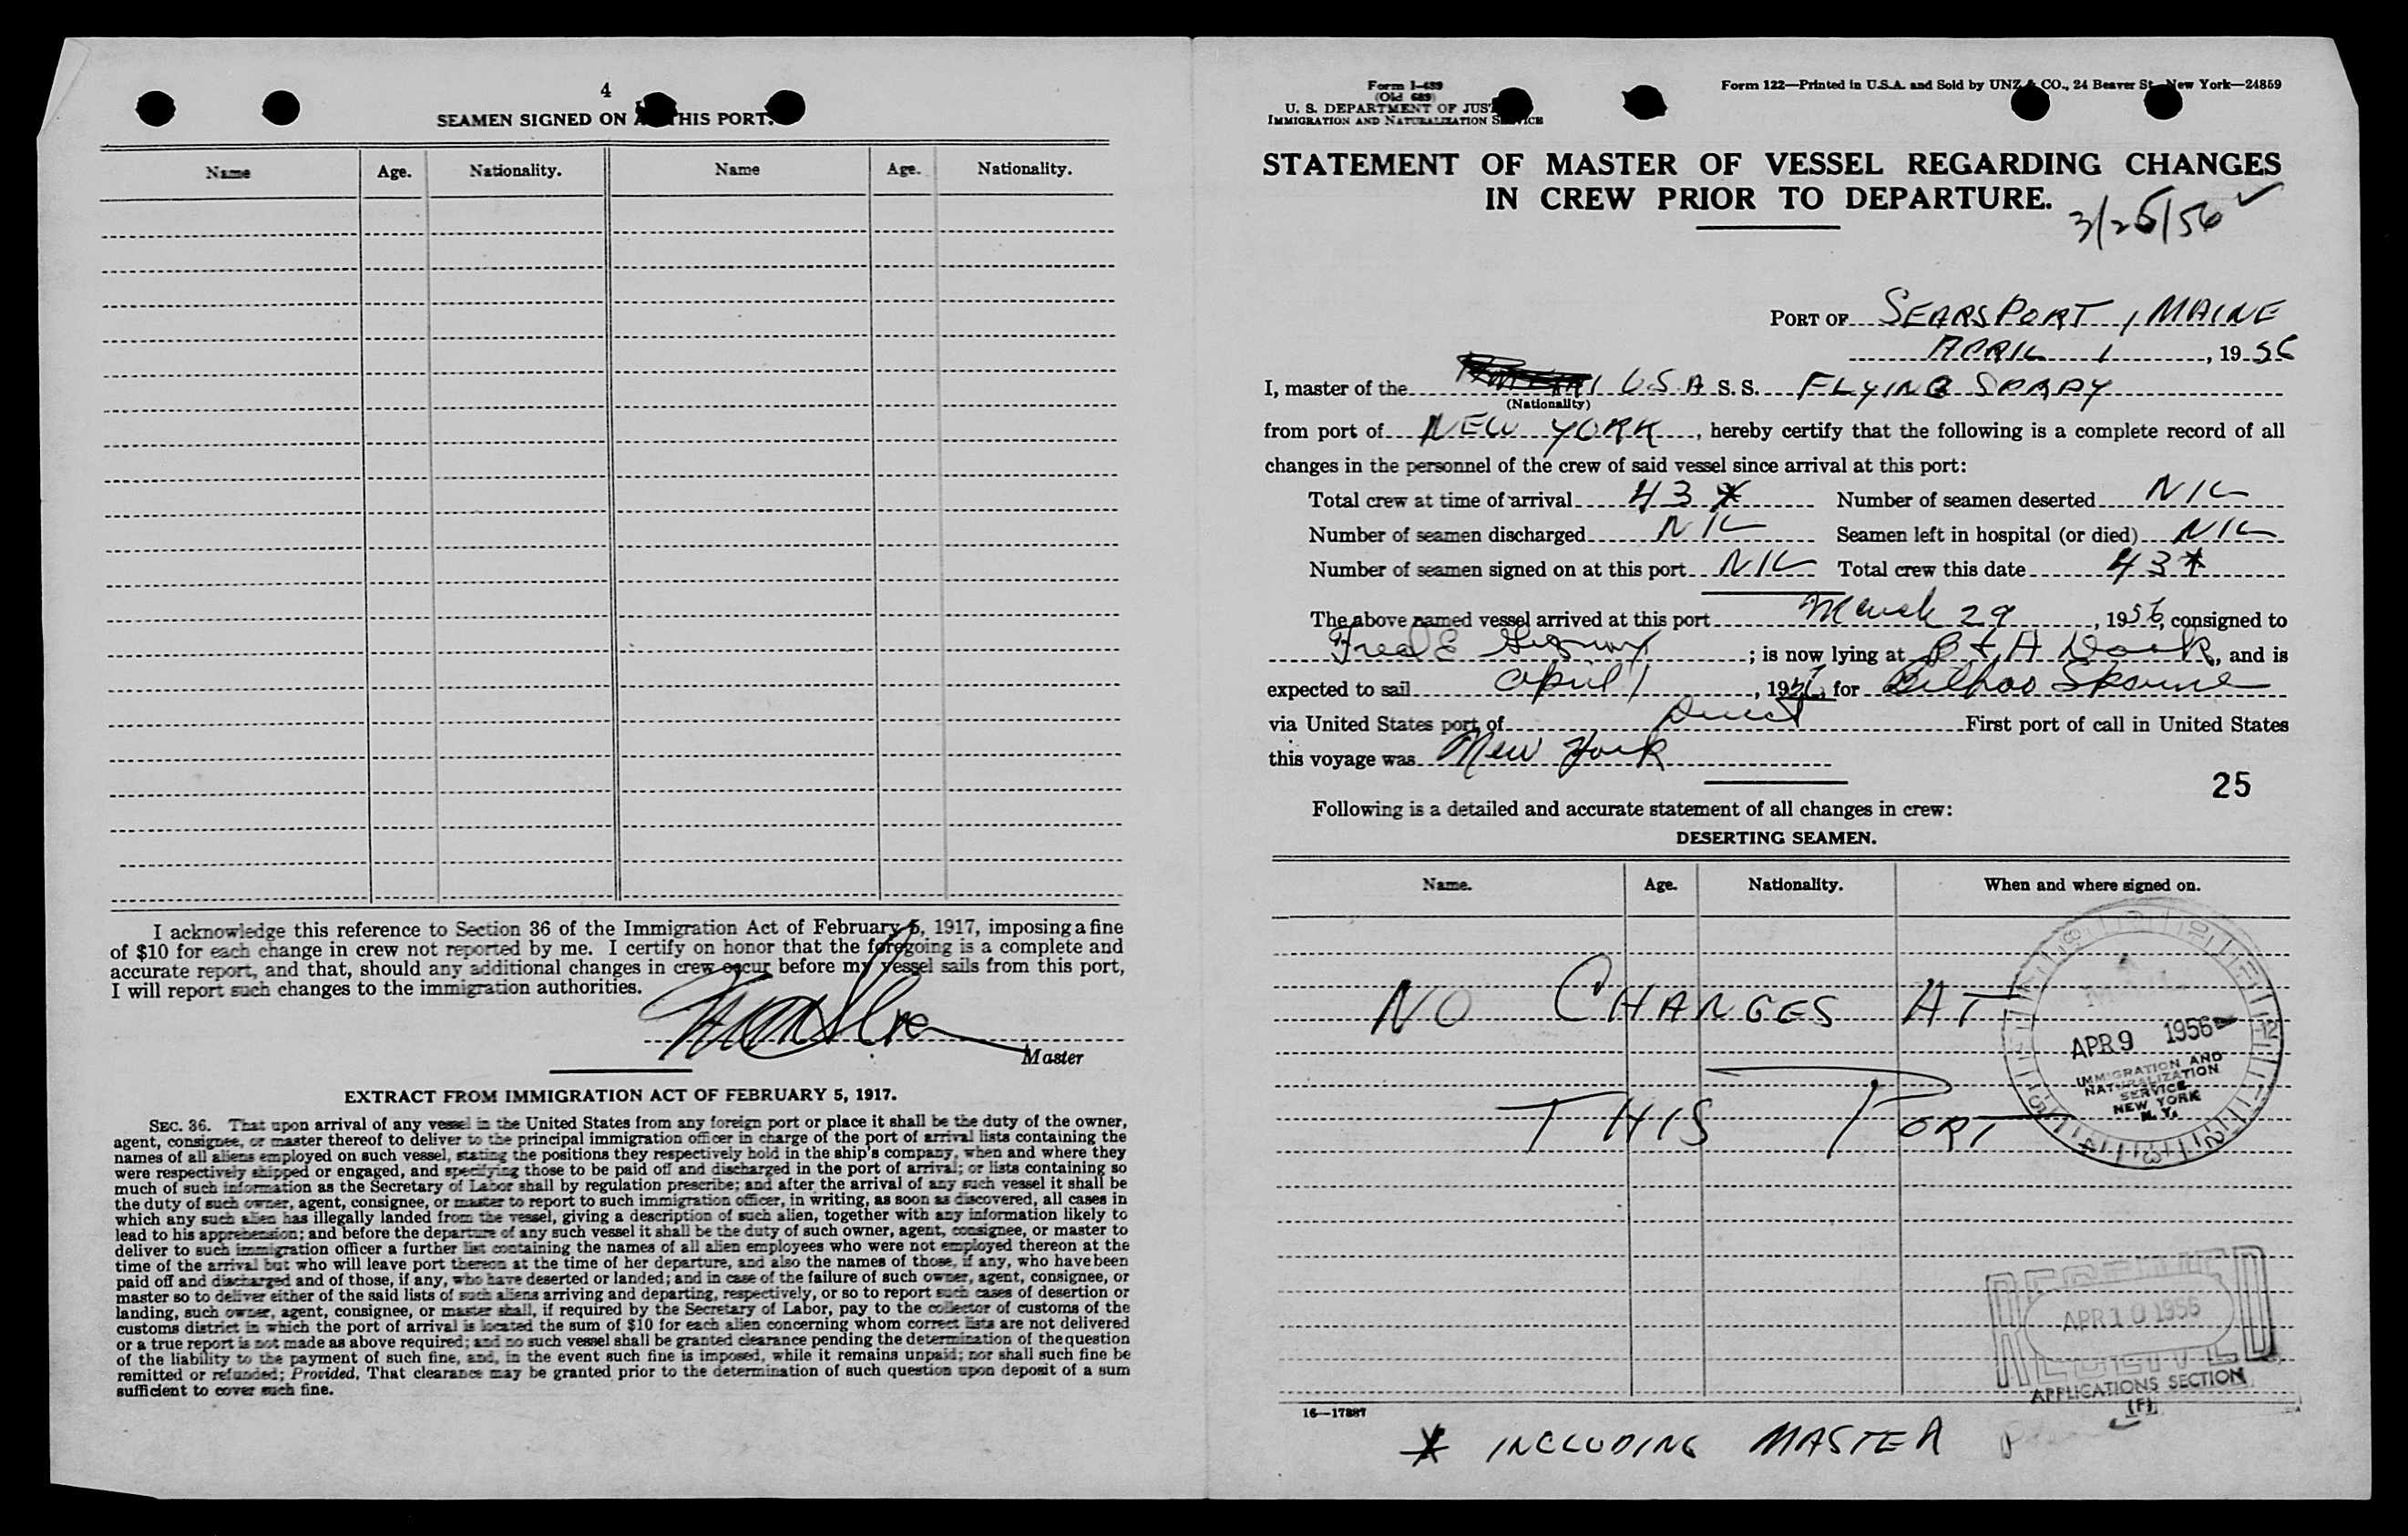 4
SEAMEN SIGNED ON THIS PORT.
Name Age. Nationality. Name Age. Nationality.
I acknowledge this reference to Section 36 of the Immigration Act of February 5, 1917, imposing a fine
of $10 for each change in crew not reported by me. I certify on honor that the foregoing is a complete and
accurate report, and that, should any additional changes in crew occur before my vessel sails from this port,
I will report such changes to the immigration authorities.
Master
EXTRACT FROM IMMIGRATION ACT OF FEBRUARY 5, 1917.
SEC. 36. That upon arrival of any vessel in the United States from any foreign port or place it shall be the duty of the owner,
agent, consignee, or master thereof to deliver to the principal immigration officer in charge of the port of arrival lists containing the
names of all aliens employed on such vessel, stating the positions they respectively hold in the ship's company, when and where they
were respectively shipped or engaged, and specifying those to be paid off and discharged in the port of arrival; or lists containing so
much of such information as the Secretary of Labor shall by regulation prescribe; and after the arrival of any such vessel it shall be
the duty of such owner, agent, consignee, or master to report to such immigration officer, in writing, as soon as discovered, all cases in
which any such alien has illegally landed from the vessel, giving a description of such alien, together with any information likely to
lead to his apprehension; and before the departure of any such vessel it shall be the duty of such owner, agent, consignee, or master to
deliver to such immigration officer a further list containing the names of all alien employees who were not employed thereon at the
time of the arrival but who will leave port thereon at the time of her departure, and also the names of those, if any, who have been
paid off and discharged and of those, if any, who have deserted or landed; and in case of the failure of such owner, agent, consignee, or
master so to deliver either of the said lists of such aliens arriving and departing, respectively, or so to report such cases of desertion or
landing, such owner, agent, consignee, or master shall, if required by the Secretary of Labor, pay to the collector of customs of the
customs district in which the port of arrival is located the sum of $10 for each alien concerning whom correct lists are not delivered
or a true report is not made as above required; and no such vessel shall be granted clearance pending the determination of the question
of the liability to the payment of such fine, and, in the event such fine is imposed, while it remains unpaid; nor shall such fine be
remitted or refunded; Provided, That clearance may be granted prior to the determination of such question upon deposit of a sum
sufficient to cover such fine.
Form I-489
(Old 689)
U. S. DEPARTMENT OF JUS
IMMIGRATION AND NATURALIZATION SERVICE
Form 122—Printed in U.S.A. and Sold by UNZ & CO., 24 Beaver St., New York—24859
STATEMENT OF MASTER OF VESSEL REGARDING CHANGES
IN CREW PRIOR TO DEPARTURE.
3/25/56 ✓
PORT OF SEARSPORT, MAINE
APRIL 1, 1956
I, master of the U.S.A S. S. FLYING SPRAY
(Nationality)
from port of NEW YORK, hereby certify that the following is a complete record of all
changes in the personnel of the crew of said vessel since arrival at this port:
Total crew at time of arrival 43 * Number of seamen deserted NIL
Number of seamen discharged NIL Seamen left in hospital (or died) NIL
Number of seamen signed on at this port NIL Total crew this date 43 *
The above named vessel arrived at this port March 29, 1956, consigned to
Fred E ; is now lying at B & A Dock, and is
expected to sail April 1, 1956, for Bilbao
via United States port of Direct First port of call in United States
this voyage was New York
25
Following is a detailed and accurate statement of all changes in crew:
DESERTING SEAMEN.
Name. Age. Nationality. When and where signed on.
NO CHANGES AT
THIS PORT
APR 9 1956
IMMIGRATION AND
NATURALIZATION
SERVICE
NEW YORK
N. Y.
RECEIVED
APR 10 1956
RECEIVED
APPLICATIONS SECTION
(F)
16—17887
* INCLUDING MASTER